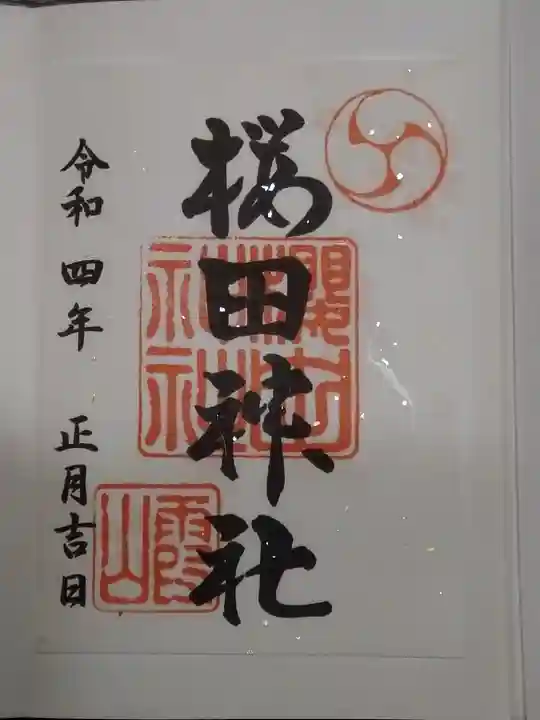 桜田神社
令和四年 正月吉日
霞山